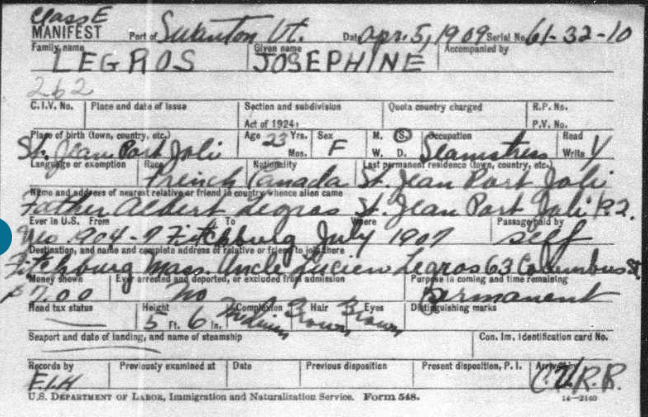 Class E
MANIFEST Port of Swanton Vt. Date Apr. 5, 1909 Serial No. 61-32-10
Family name Given name Accompanied by
LEGROS JOSEPHINE
262
C.I.V. No. Place and date of issue Section and subdivision Quota country charged R.P. No.
Act of 1924: P.V. No.
Place of birth (town, country, etc.) Age 23 Yrs. Sex M. S. Occupation Read
St. Jean Port Joli Mos. F W. D. Seamstress Write V
Language or exemption Race Nationality Last permanent residence (town, country, etc.)
French Canada St. Jean Port Joli
Name and address of nearest relative or friend in country whence alien came
Father Legros St. Jean Port Joli P.2.
Ever in U.S. From To Where Passage paid by
Fitchburg July 1907 self
Destination, and name and complete address of relative or friend to join there
Fitchburg Mass. Uncle Lucien Legros 63 Columbus St.
Money shown Ever arrested and deported, or excluded from admission Purpose in coming and time remaining
No Permanent
Head tax status Height Complexion Hair Eyes Distinguishing marks
5 Ft. 6 In. Medium Brown Brown
Seaport and date of landing, and name of steamship Con. Im. Identification card No.
Records by Previously examined at Date Previous disposition Present disposition, P. I. Arrived
ELH C.V.R.R.
U.S. DEPARTMENT OF LABOR, Immigration and Naturalization Service. Form 548. 14-2160